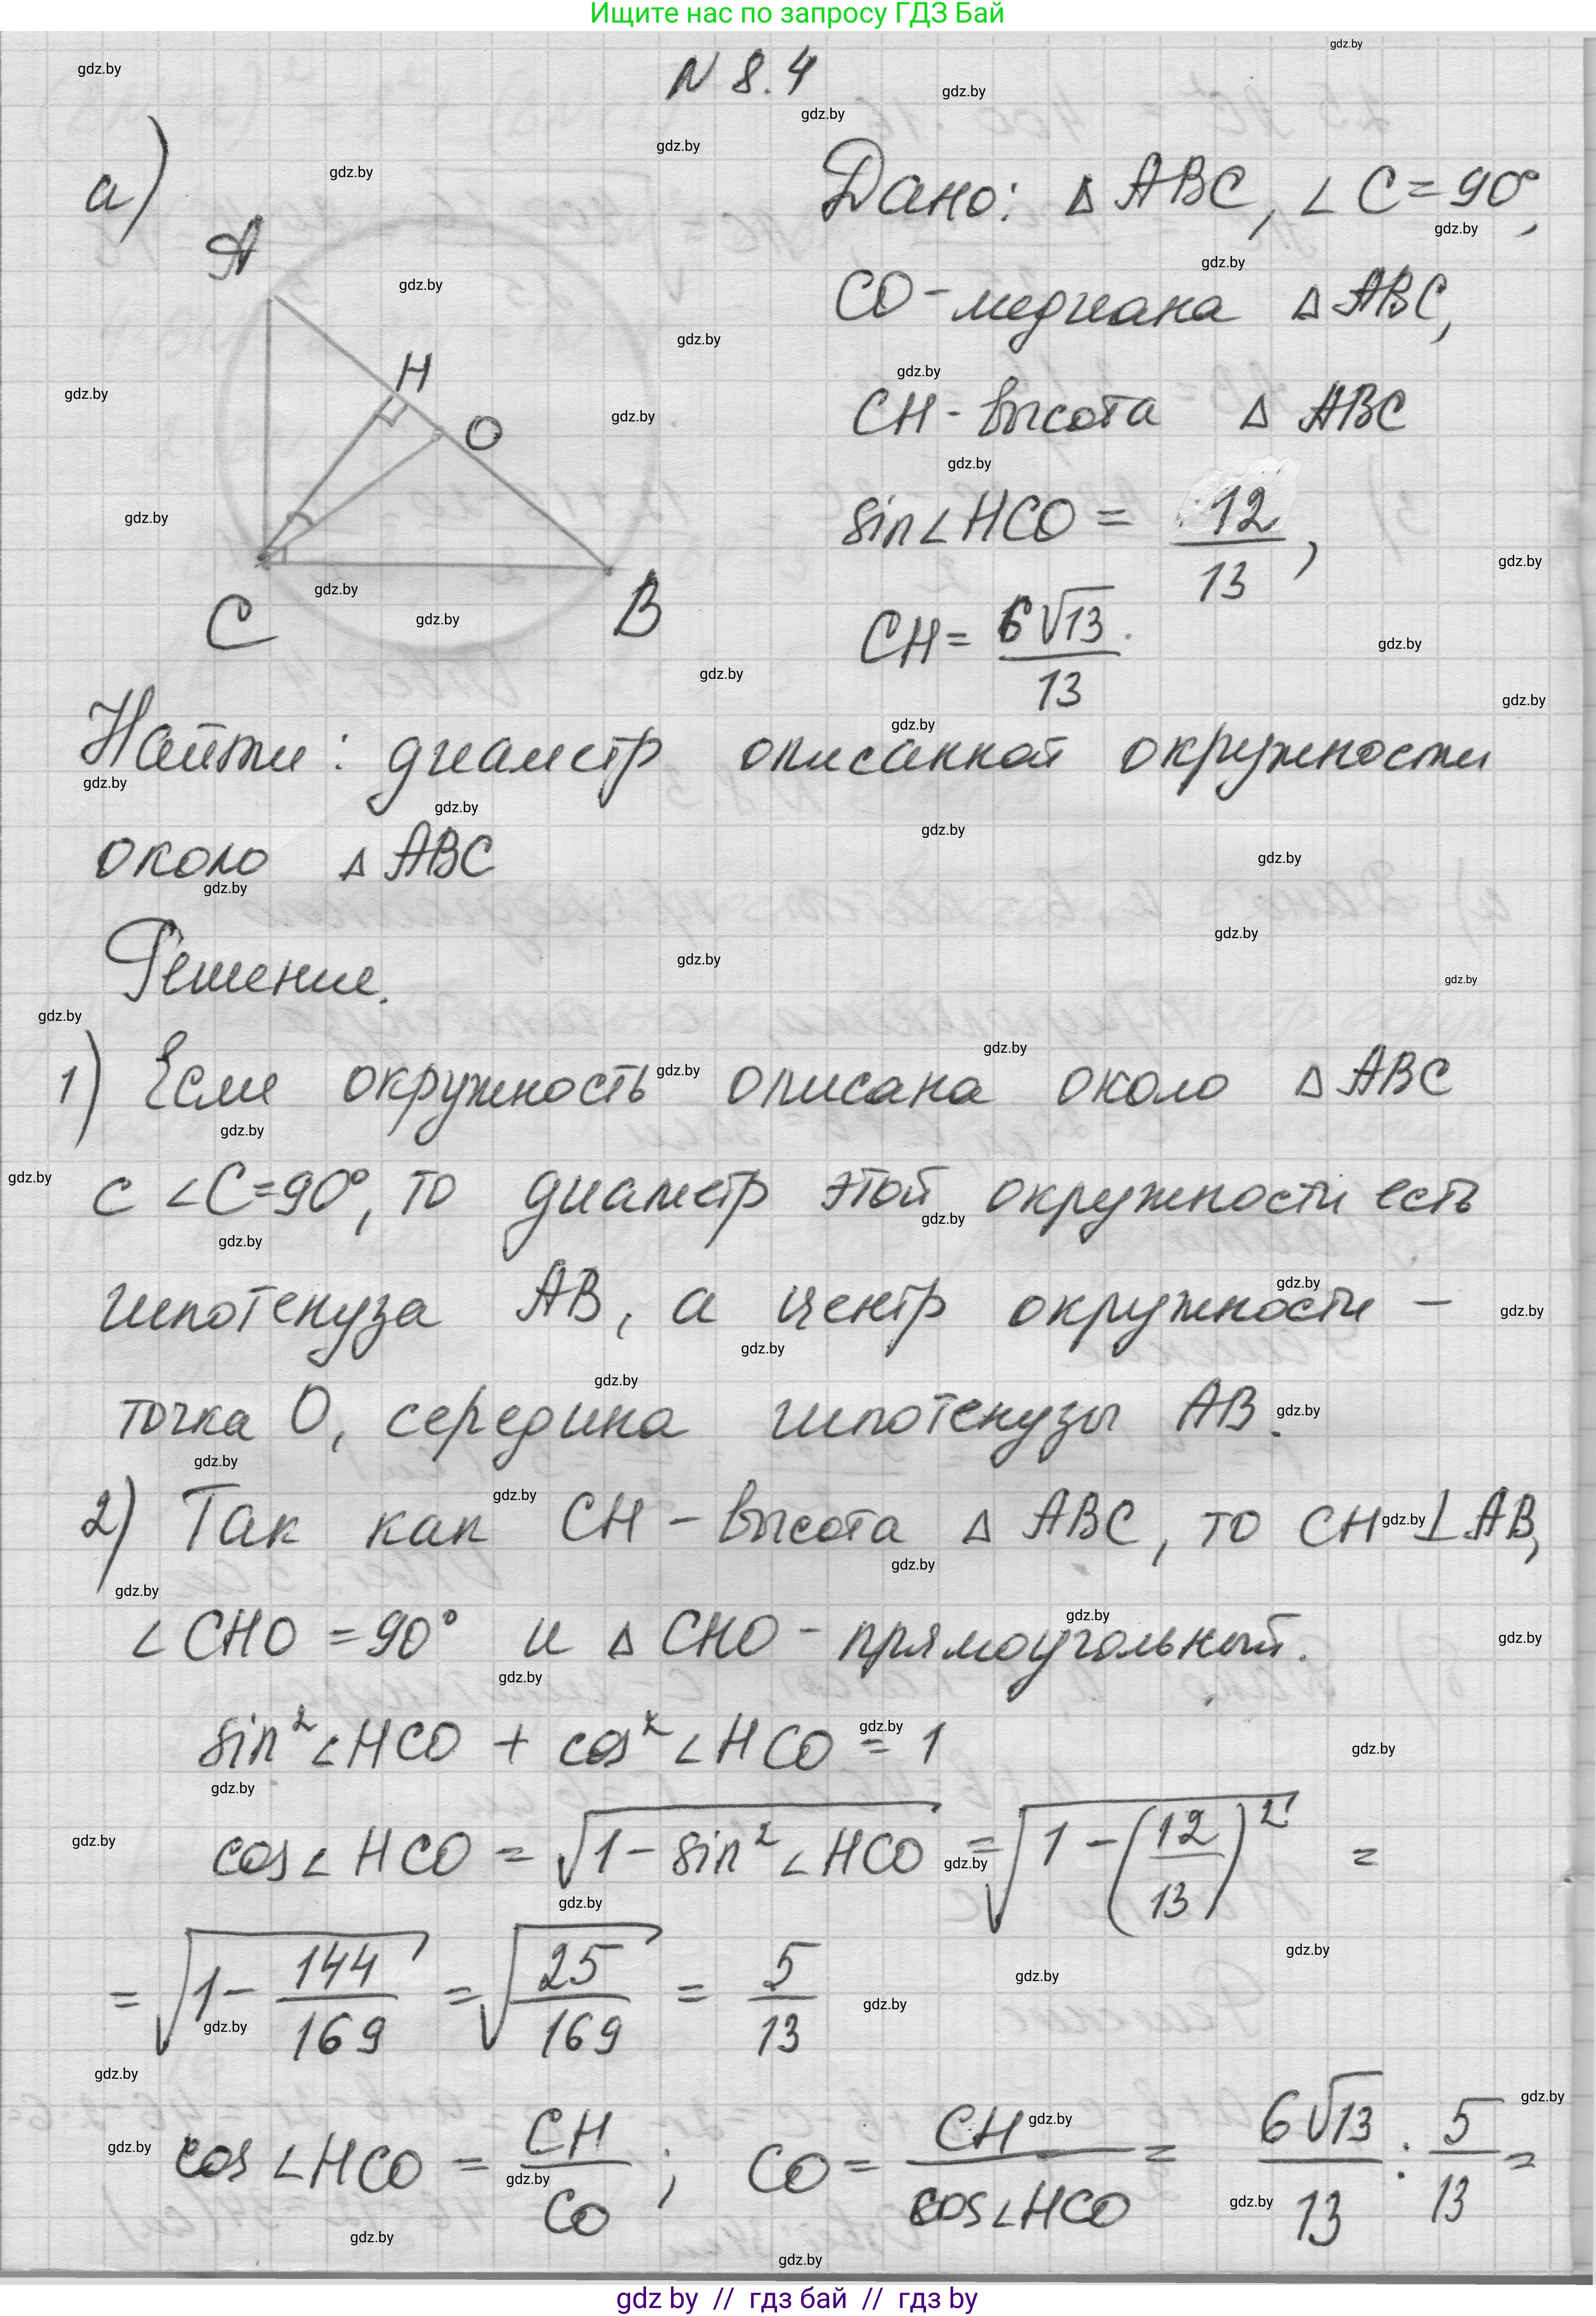 Ищите нас по запросу ГДЗ Бай
N 8.4
а)
Дано: △ ABC, ∠ C = 90°,
CO - медиана △ ABC,
CH - высота △ ABC
sin∠HCO = 12/13,
CH = 6√13/13.
A
H
O
C
B
Найти: диаметр описанной окружности
около △ ABC
Решение.
1) Если окружность описана около △ ABC
с ∠C=90°, то диаметр этой окружности есть
гипотенуза AB, а центр окружности –
точка O, середина гипотенузы AB.
2) Так как CH – высота △ ABC, то CH ⊥ AB,
∠ CHO = 90° и △ CHO – прямоугольный.
sin² ∠HCO + cos² ∠HCO = 1
cos∠HCO = √(1 - sin² ∠HCO) = √(1 - (12/13)²) =
= √(1 - 144/169) = √(25/169) = 5/13
cos∠HCO = CH/CO ; CO = CH/cos∠HCO = 6√13/13 : 5/13 =
gdz by // гдз бай // гдз by